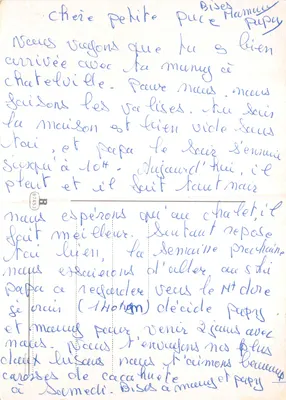 Bises Maman
chère petite puce papy
Nous voyons que tu es bien
arrivée avec ta mamy à
chatelville. Pour nous, nous
faisons les valises. Tu sais
la maison est bien vide sans
toi, et papa le soir s'ennuie
jusqu'à 10H. Aujourd'hui, il
pleut et il fait tout noir
nous espérons qu'au chalet, il
fait meilleur. Surtout repose
toi bien, la semaine prochaine
nous essaierons d'aller au ski
papa a regarder vers le Mt dore
si mais décide papy
et mamy pour venir 2 jours avec
nous. Nous t'envoyons nos plus
doux bisous nous t'aimons beaucoup
caresses de cacahuete
à Samedi. Bises à mamy et papy